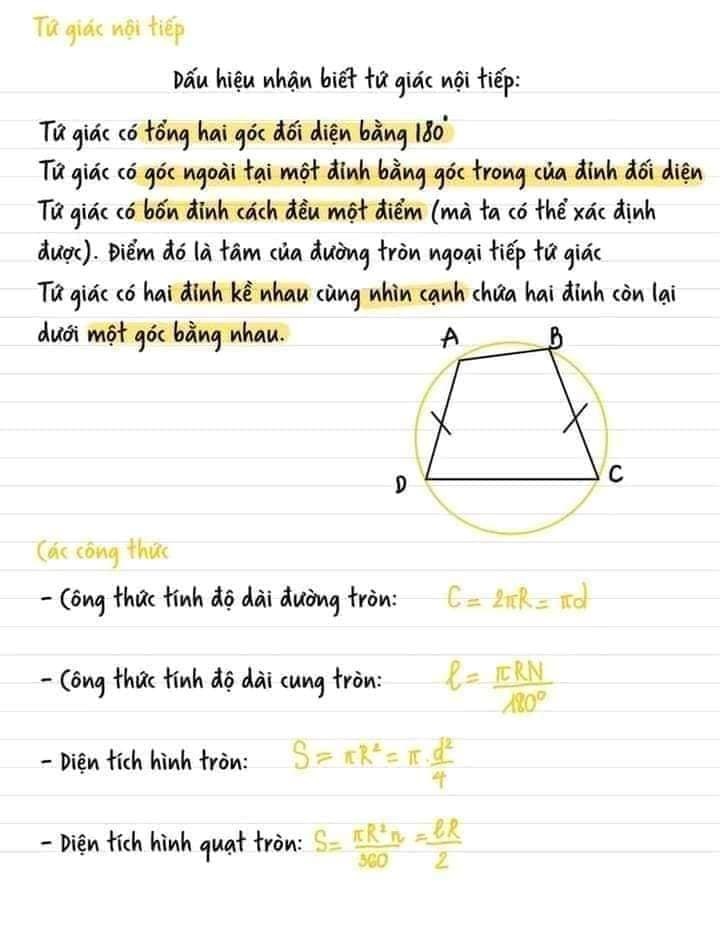 Tứ giác nội tiếp
Dấu hiệu nhận biết tứ giác nội tiếp:
Tứ giác có tổng hai góc đối diện bằng 180°
Tứ giác có góc ngoài tại một đỉnh bằng góc trong của đỉnh đối diện
Tứ giác có bốn đỉnh cách đều một điểm (mà ta có thể xác định
được). Điểm đó là tâm của đường tròn ngoại tiếp tứ giác
Tứ giác có hai đỉnh kề nhau cùng nhìn cạnh chứa hai đỉnh còn lại
dưới một góc bằng nhau.
A B
D C
Các công thức
- Công thức tính độ dài đường tròn: C = 2πR = πd
- Công thức tính độ dài cung tròn: l = πRN/180°
- Diện tích hình tròn: S = πR² = π.d²/4
- Diện tích hình quạt tròn: S = πR²n/360 = lR/2